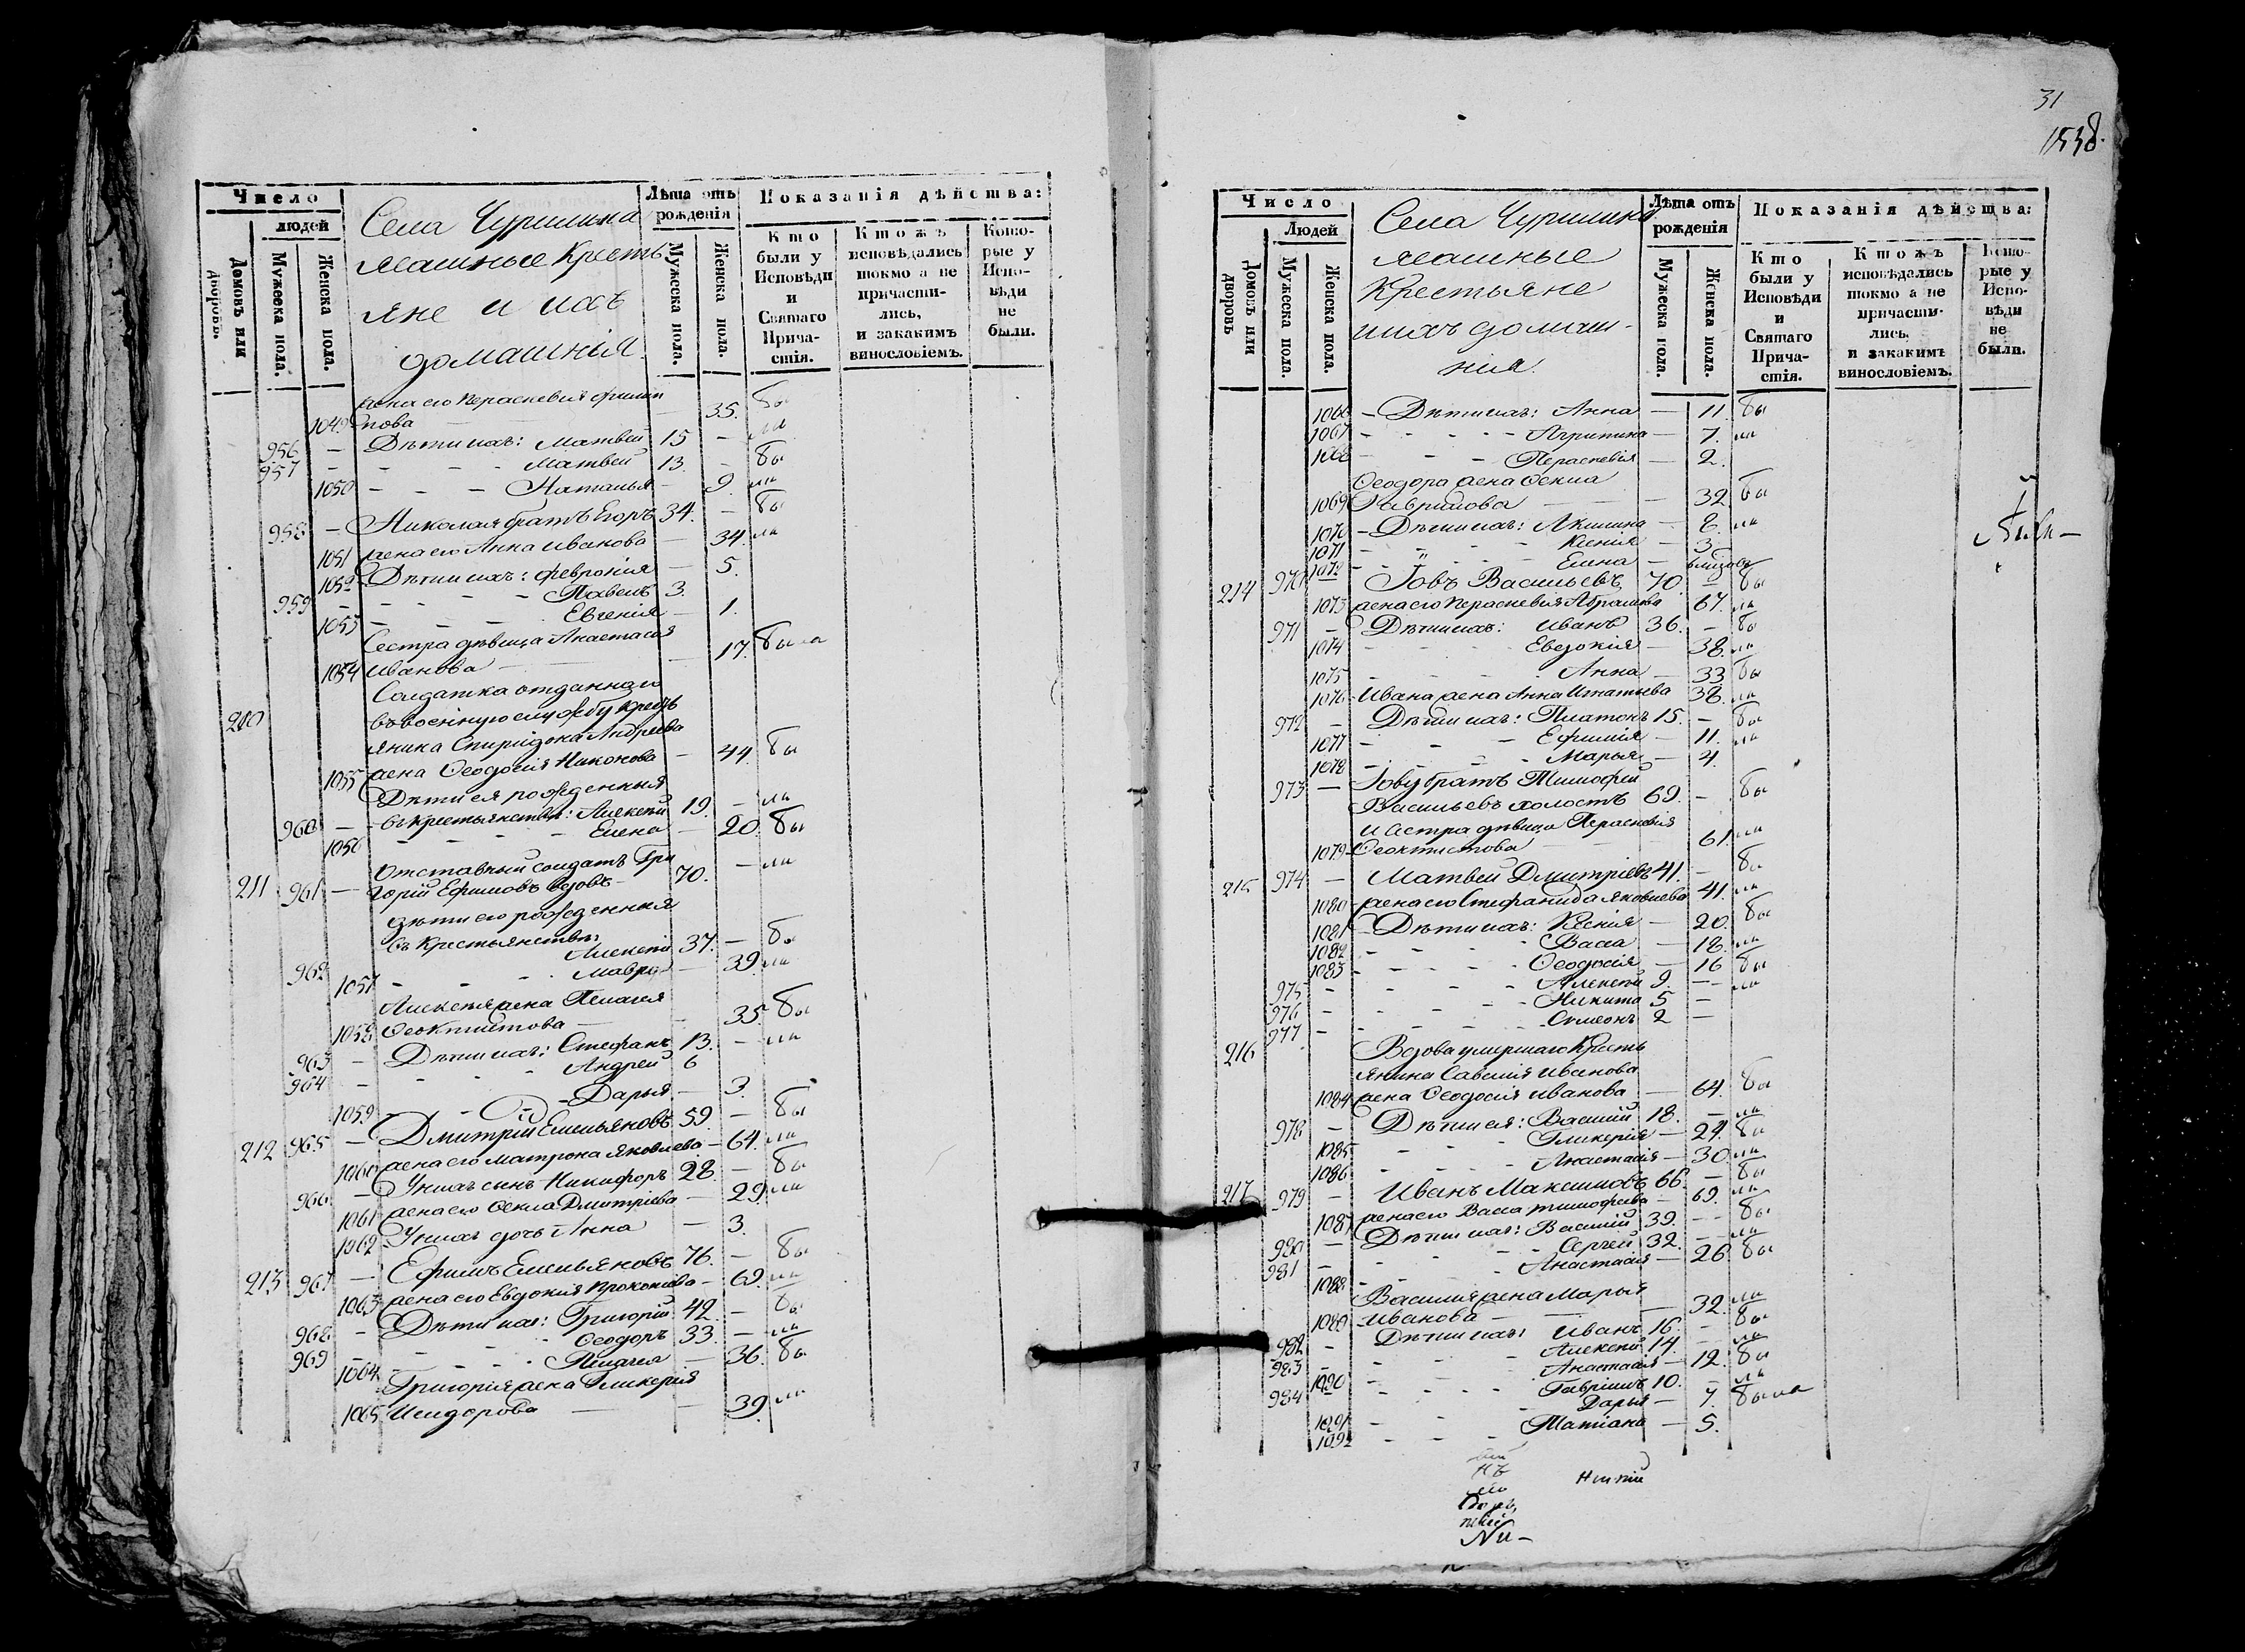 Число
людей
Домовъ или дворовъ.
Мужеска пола.
Женска пола.
Села Чуришина
яашные кресть
яне и ихъ
домашнія.
Лѣта отъ рожденія
Мужеска пола.
Женска пола.
Показанія дѣйства:
Кто были у Исповѣди и Святаго Причастія.
Ктожъ исповѣдались токмо а не причастились, и закакимъ винословіемъ.
Которые у Исповѣди не были.
жена его Параскевія Филип
1049 пова — 35. бы
956 — Дѣти ихъ: Матвей 15 — ли
957 — Матвей 13. — бы
1050 — Наталья — 9. ли
958 — Николая братъ Егоръ 34. — бы
1051 жена его Анна Иванова — 34. ли
1052 Дѣти ихъ: Феврония — 5.
959 — Павелъ 3.
1053 — Евгенія — 1.
Сестра дѣвица Анастасія
1054 Иванова — 17. была
210 Солдатка отданнаго
въ военную службу кресть
янина Спиридона Андреева
1055 жена Ѳеодосія Никонова — 44. бы
Дѣти ея рожденныя
960 — въ крестьянствѣ: Алексѣй 19. — ли
1056 — Елена — 20. бы
Отставный солдатъ Гри
211 961 — горій Ефимовъ вдовъ 70. — ли
дѣти его рожденныя
въ крестьянствѣ:
962 Алексѣй 37. — бы
1057 — Мавра — 39. ли
Алексѣя жена Пелагея
1058 Ѳеоктистова — 35. бы
963 — Дѣти ихъ: Стефанъ 13. — ли
964 — Андрей 6
1059 — Дарья — 3.
212 965 — Дмитрій Емельяновъ 59. — бы
1060 жена его Матрона Яковлева — 64. ли
966 — У нихъ сынъ Никифоръ 28. — бы
1061 жена его Ѳекла Дмитріева — 29. ли
1062 У нихъ дочь Анна — 3.
213 967 — Ефимъ Емельяновъ 76. — бы
1063 жена его Евдокия Прокопиева — 69. ли
968 — Дѣти ихъ: Григорій 42. — бы
969 — Ѳеодоръ 33. — ли
1064 — Пелагея — 36. бы
Григорія жена Гликерия
1065 Исидорова — 39. ли
31
1538.
Число
Людей
Домовъ или дворовъ
Мужеска пола.
Женска пола.
Села Чуришина
яашные
Крестьяне
и ихъ домаш-
нія.
Лѣта отъ рожденія
Мужеска пола.
Женска пола.
Показанія дѣйства:
Кто были у Исповѣди и Святаго Причастія.
Ктожъ исповѣдались токмо а не причастились, и закакимъ винословіемъ.
Которые у Исповѣди не были.
1066 — Дѣти ихъ: Анна — 11. бы
1067 — Агрипина — 7. ли
1068 — Параскевія — 2.
Ѳеодора жена Ѳекла
1069 Гаврилова — 32 бы
1070 — Дѣти ихъ: Акилина — 8. ли
1071 — Ксенія — 3.
1072 — Елена — близ
214 970 Іовъ Васильевъ 70. — бы
1073 жена его Параскевія Абрамова 67. ли
971 — Дѣти ихъ: Иванъ 36. — бы
1074 — Евдокія — 38. ли
1075 — Анна — 33 бы
1076 Ивана жена Анна Игнатьева 38. ли
972 — Дѣти ихъ: Платонъ 15. — бы
1077 — Ефимія — 11. ли
1078 — Марья — 4.
973 — Іову братъ Тимофей
Васильевъ холостъ 69. — бы
и Сестра дѣвица Параскевія
1079 Ѳеоктистова — 61. ли
215 974 — Матвей Дмитріевъ 41. — бы
1080 жена его Стефанида Яковлева 41. ли
1081 Дѣти ихъ: Ксенія — 20. бы
1082 — Васса — 18. ли
1083 — Ѳеодосія — 16 бы
975 — Алексѣй 9. — ли
976 — Никита 5 —
977 — Симеонъ 2 —
216 Вдова умершаго Кресть
янина Савелія Иванова
1084 жена Ѳеодосія Иванова — 64. бы
978 — Дѣти ея: Василій 18. — ли
1085 — Гликерія — 24. бы
1086 — Анастасія — 30. ли
217 979 — Иванъ Максимовъ 66. — бы
1087 жена его Васса Тимофеева — 69. ли
980 — Дѣти ихъ: Василій 39. — бы
981 — Сергей 32. — ли
1088 — Анастасія — 26. бы
Василия жена Марья
1089 Иванова — 32. ли
982 — Дѣти ихъ: Иванъ 16. — бы
983 — Алексѣй 14. — ли
1090 — Анастасія — 12. бы
984 — Гавріилъ 10. — ли
1091 — Дарья — 7. была
1092 — Татіана — 5.